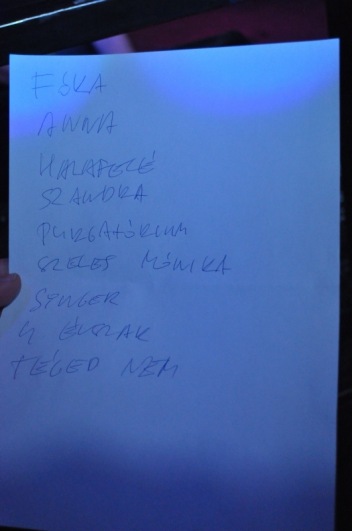 FÓKA
ANNA
HALAFELÉ
SZANDRA
PURGATÓRIUM
SZELES MÓNIKA
SINGER
4 ÉVSZAK
TÉGED NEM